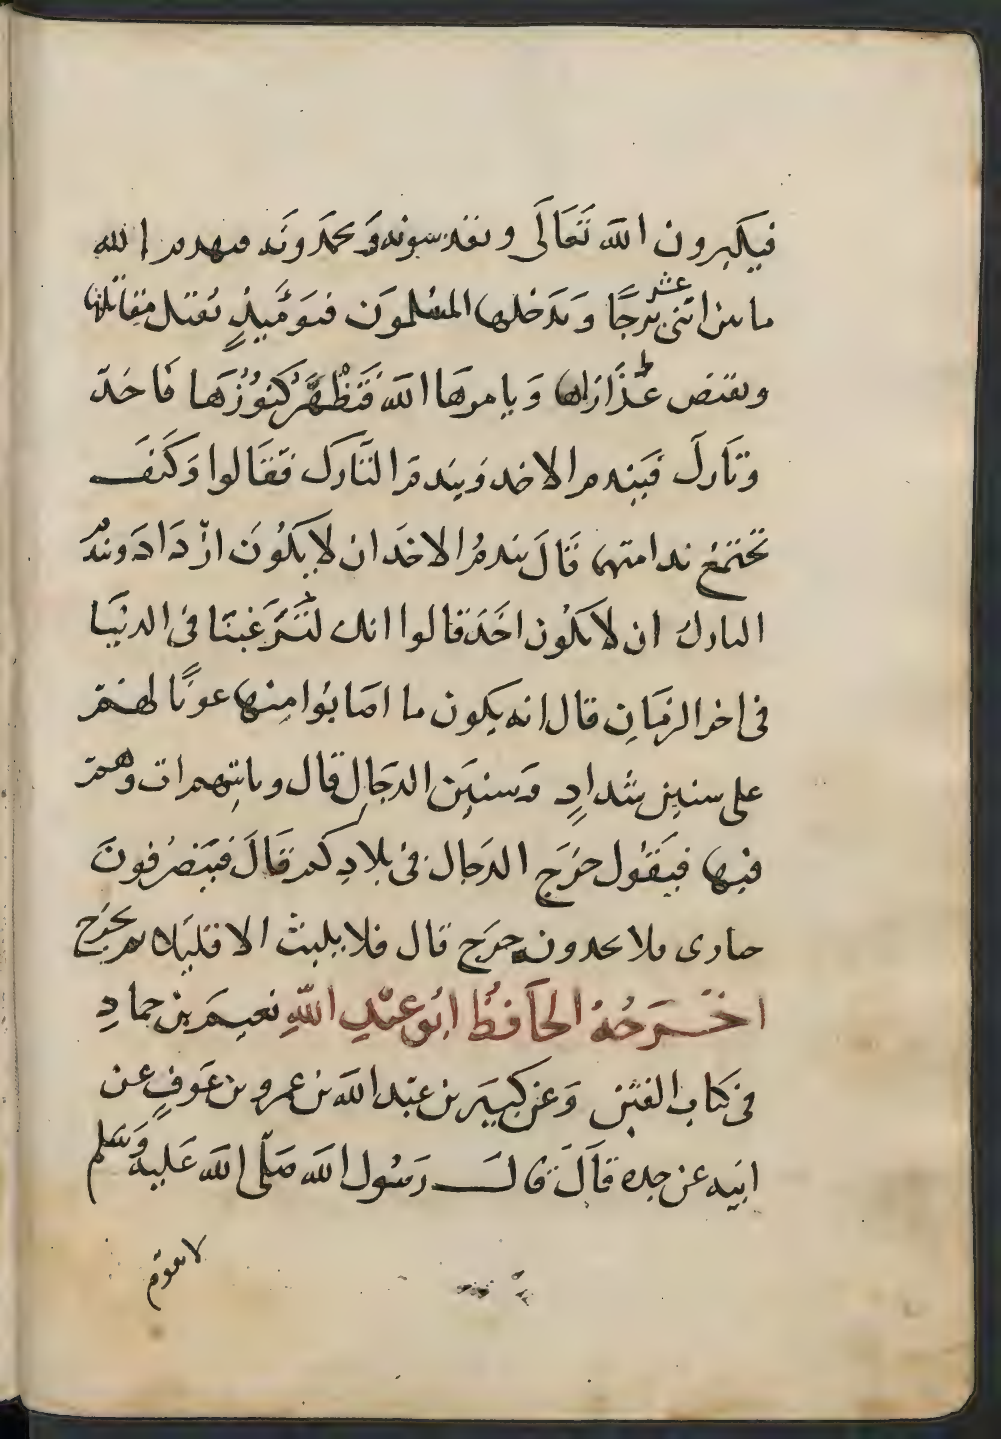 فيكبرون الله تَعَالَى ويقدسونه وَيحمَدونَه فيهدم الله
ما بين اثنى عشر برجًا وَيَدخلها المسُلمونَ فيَومَئِيذٍ تُقتل مقاتلتها
وتفتض عُذَّارَاها وَيامرهَا الله فَتَظْهَرُ كنُوُزُهَا فاخذ
وتَارك فَيَندم الاخذ وَيندمَ التَّارك فقَالوا وَكَيفَ
تَجتَمعُ ندامتهما قَالَ يندمُ الاخذ ان لا يَكوُنَ ازْدَادَ ويندم
التارك ان لا يكُون اخَذَ قالوا انك لتُرَغبنَا فى الدنيَا
فى اخر الزمَانِ قال انه يكون ما اصَابُوا مِنها عونًا لهُم
على سنين شدادٍ وَسنيَن الدجَالِ قال وياتيهم ات وهم
فيها فيَقُول خرَج الدجال فى بلادكم قَالَ فيَنصرُفونَ
حيارى فلا يجدونه خرَج قال فلا يلبث الا قليلا حتى يخرَج
اخرَجهُ الحَافظُ ابُو عبدِ اللهِ نعيم بن حمادٍ
فى كتاب الفتن وَعَن كثيَر بن عَبد الله بن عمرو بن عَوفٍ عن
ابيه عن جده قَالَ قالَ رَسُول الله صَلّى الله عَليه وَسَلم
لا تقوم